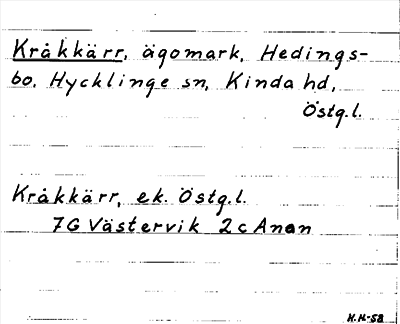 Kråkkärr, ägomark, Hedings-
bo, Hycklinge sn, Kinda hd,
Östg.l.
Kråkkärr, ek. Östg.l.
7G Västervik 2c Anan
H.H-58